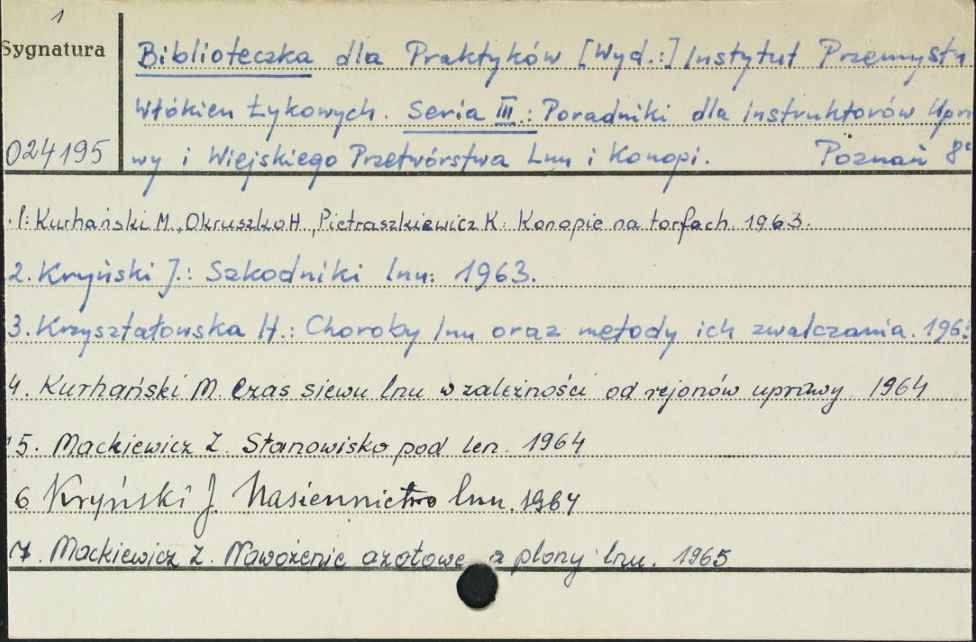 1
Sygnatura
024195
Biblioteczka dla Praktyków [Wyd.:] Instytut Przemysłu
Włókien Łykowych. Seria III.: Poradniki dla Instruktorów Upra
wy i Wiejskiego Przetwórstwa Lnu i Konopi. Poznań 8°
1: Kurhański M., Okruszko H., Pietraszkiewicz K: Konopie na torfach. 1963.
2. Kryński J.: Szkodniki lnu. 1963.
3. Krzyształowska H.: Choroby lnu oraz metody ich zwalczania.
4. Kurhański M. Czas siewu lnu w zależności od rejonów uprawy 1964
5. Mackiewicz Z. Stanowisko pod len. 1964
6 Kryński J. Nasiennictwo lnu. 1964
7. Mackiewicz Z. Nawożenie azotowe a plony lnu. 1965